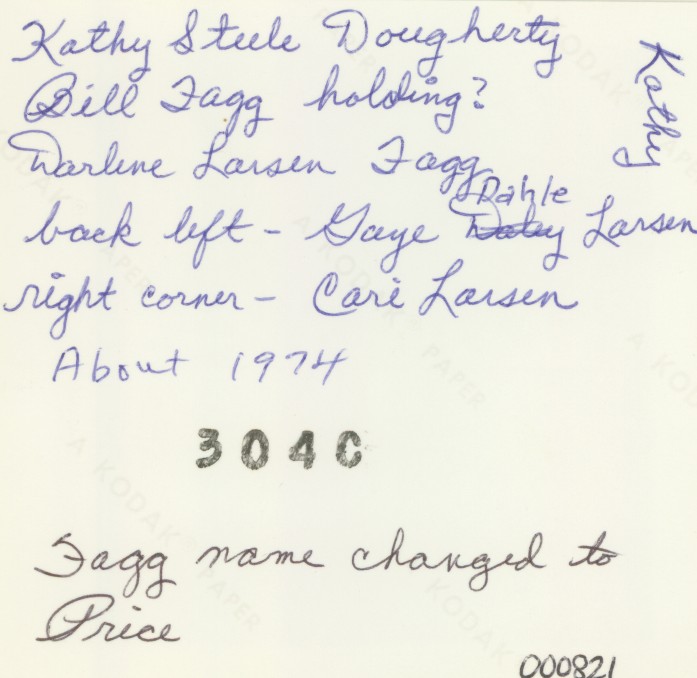 Kathy Steele Dougherty
Kathy
Bill Fagg holding?
Darlene Larsen Fagg
Dahle
back left - Gaye Daley Larsen
right corner - Cari Larsen
About 1974
304C
Fagg name changed to
Price
000821
A KODAK PAPER
A KODAK PAPER
A KODAK PAPER